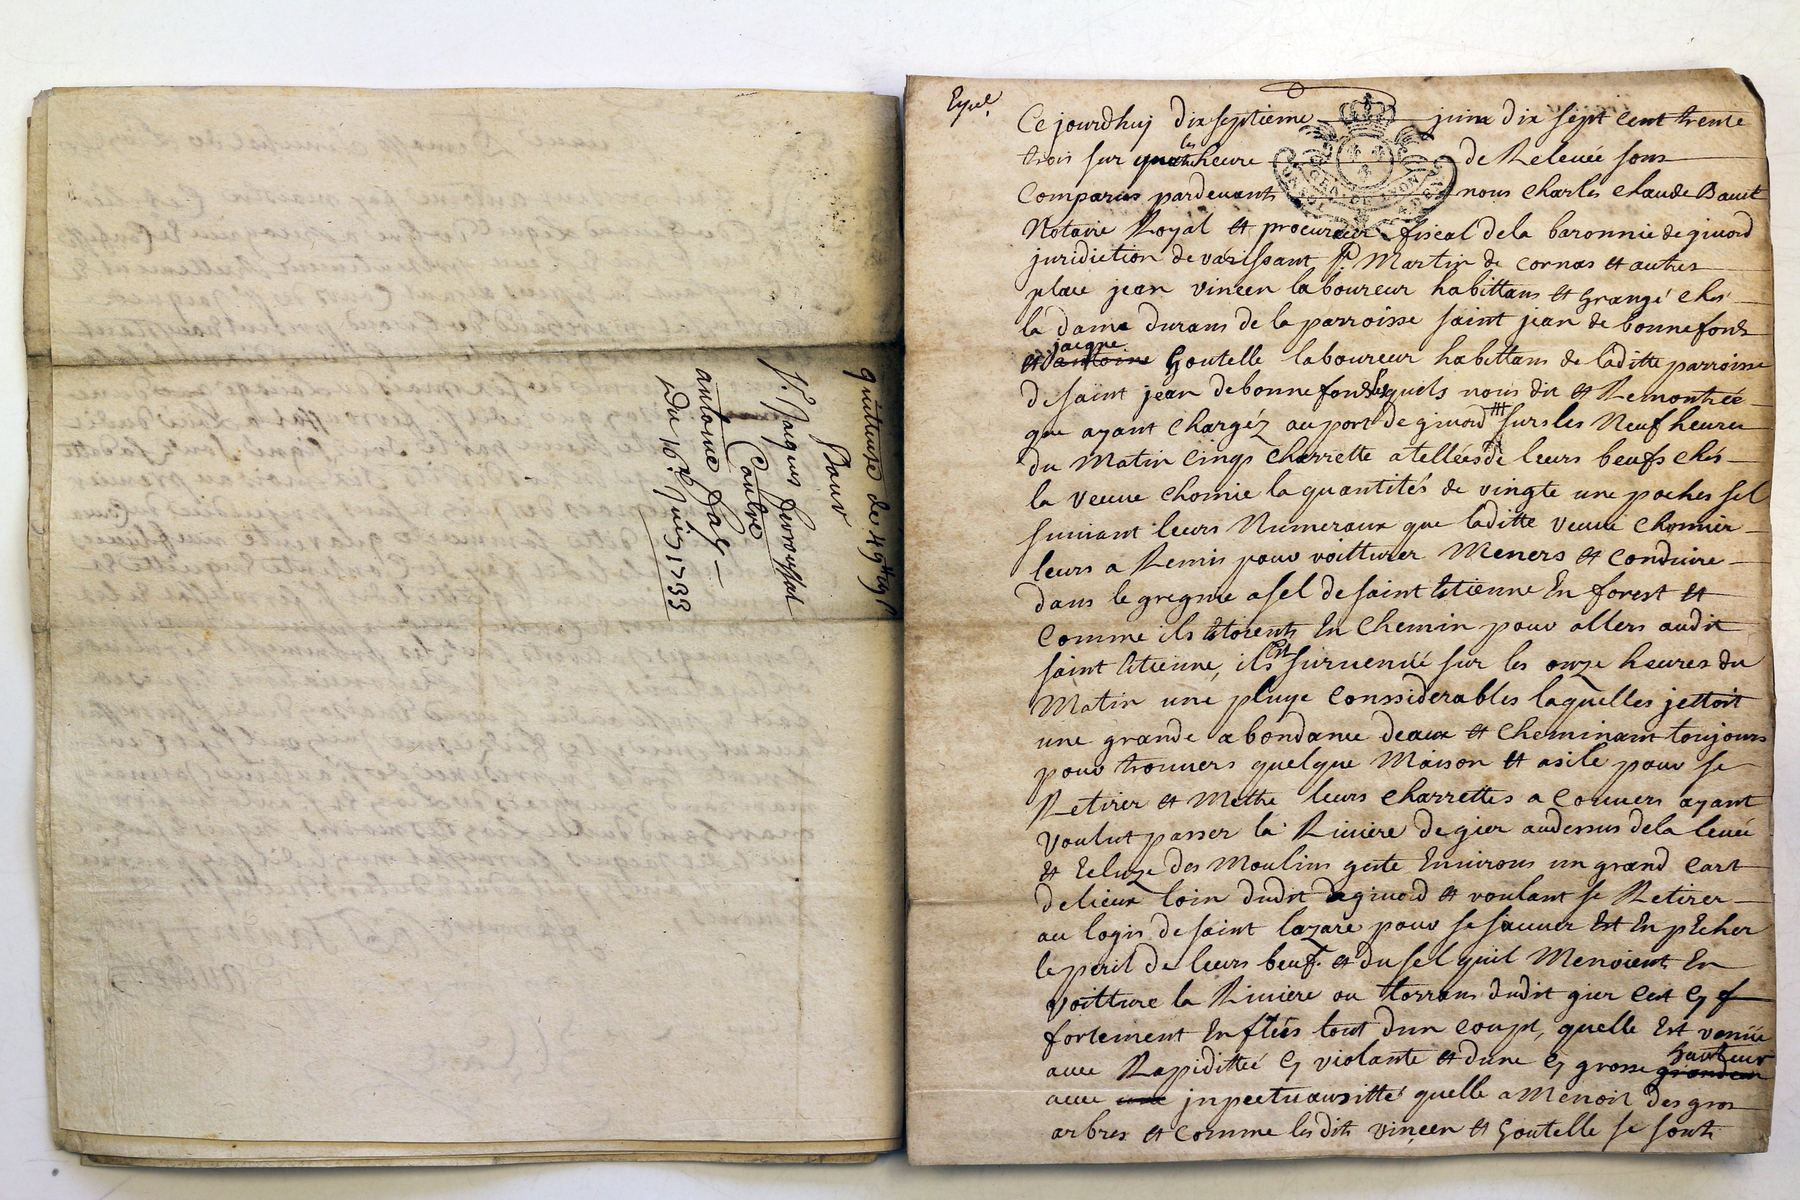 quittence de 49
Pour
Sr. Jacques ferroussat
Contre
antoine faly
Du 16e. Juin 1733
Expée.
Ce jourdhuj dix septieme juin dix sept cent trente
trois sur les heure de Relevée sont
Comparus pardevant nous Charles Claude Baut
Notaire Royal et procureur fiscal dela baronnie de givord
juridiction de varissant St. Martin de Cornas et autres
place jean vincen laboureur habittans et Grangé chés
la dame durans de la parroisse saint jean de bonnefonds
et jacque Goutelle laboureur habittans de laditte parroisse
de saint jean de bonnefonds lesquels nous dit et Remontrée
que ayant chargéz au port de givord sur les Neuf heures
du Matin cinqs charrette atellées de leurs beufs chés
la veuve chomie la quantités de vingte une poches sel
suivant leurs Numeraux que laditte veuve chomier
leurs a Remis pour voitturer Meners et conduire
dans le gregnie a sel de saint Etienne En forest et
Comme ils Etorents En chemin pour allers audit
saint Etienne, ils Est survenüé sur les onze heures du
Matin une pluye Conssiderables laquelles jettoit
une grande abondance deaux et cheminant toujours
pour trouvers quelque Maison et asile pour se
Retirer et Mettre leurs charrettes a Couvers ayant
voulut passer la Riviere de gier audessus dela levée
et Ecluze des Moulins geste Environs un grand cart
de lieux loin dudit degivord et voulant se Retirer
au logis de saint lazare pour se sauver Est EnpEcher
le peril de leurs beuf. et du sel quil Menoients En
voitture la Riviere ou torrans dudit gier cest sy f
fortement Enflées tout dun coupt, quelle Est venüe
avec Rapidittée sy violante et dune sy grosse hauteur
avec jnpectueausitté quelle a Menoit des gros
arbres et Comme lesdits vinçen et Goutelle se sonts